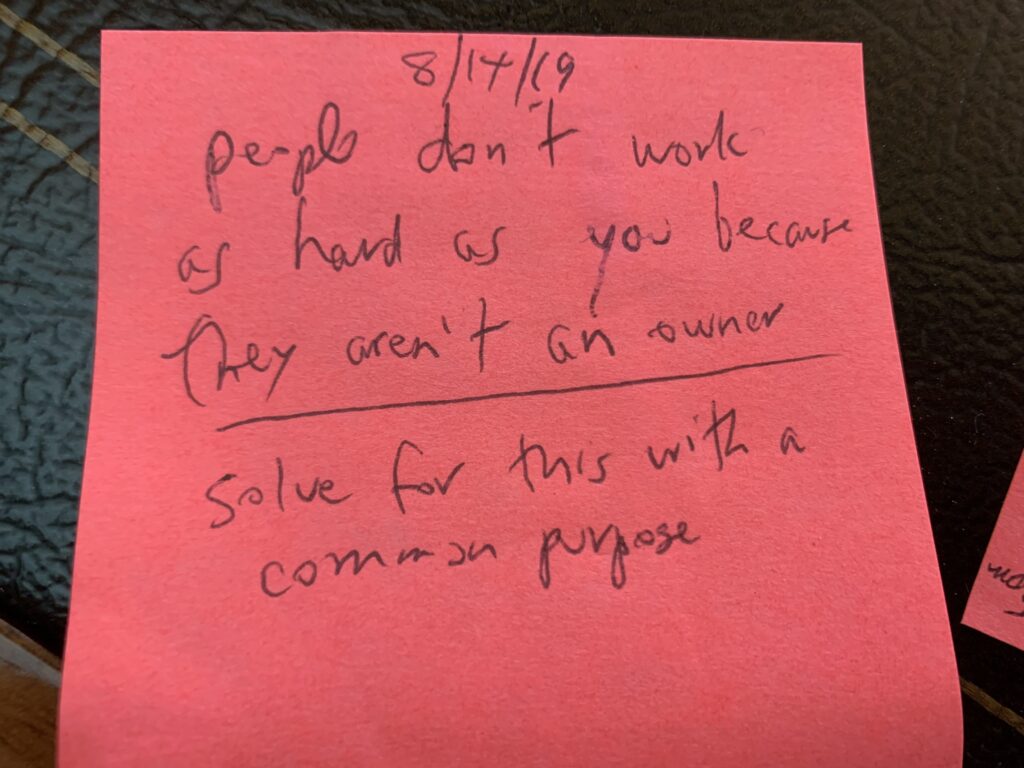 8/14/19
people don't work
as hard as you because
they aren't an owner
solve for this with a
common purpose